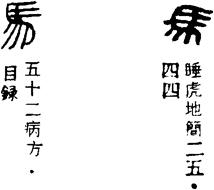 馬
睡虎地簡二五·
四四
馬
五十二病方·
目録